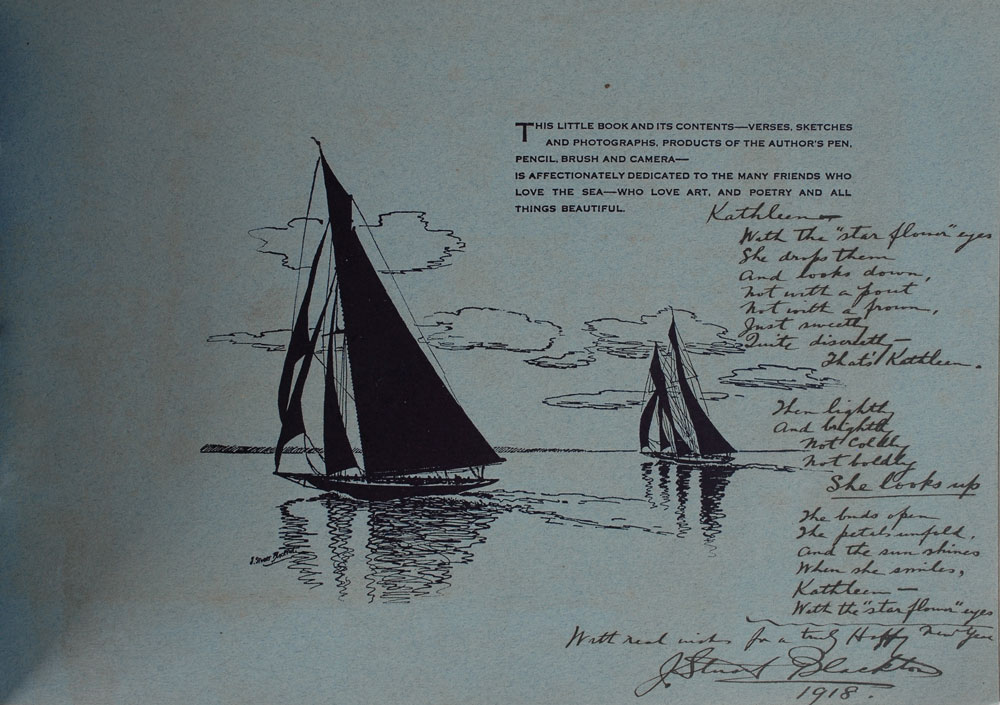 THIS LITTLE BOOK AND ITS CONTENTS—VERSES, SKETCHES
AND PHOTOGRAPHS, PRODUCTS OF THE AUTHOR'S PEN,
PENCIL, BRUSH AND CAMERA—
IS AFFECTIONATELY DEDICATED TO THE MANY FRIENDS WHO
LOVE THE SEA—WHO LOVE ART, AND POETRY AND ALL
THINGS BEAUTIFUL.
Kathleen—
With the "star flower" eyes
She drops them
And looks down,
Not with a pout
Not with a frown,
Just sweetly
Quite discreetly—
That's Kathleen.
Then lightly
And brightly
Not Coldly
Not boldly
She looks up
The buds open
The petals unfold,
And the sun shines
When she smiles,
Kathleen—
With the "star flower" eyes
With real wishes for a truly Happy New Year
J. Stuart Blackton
1918.
J. Stuart Blackton